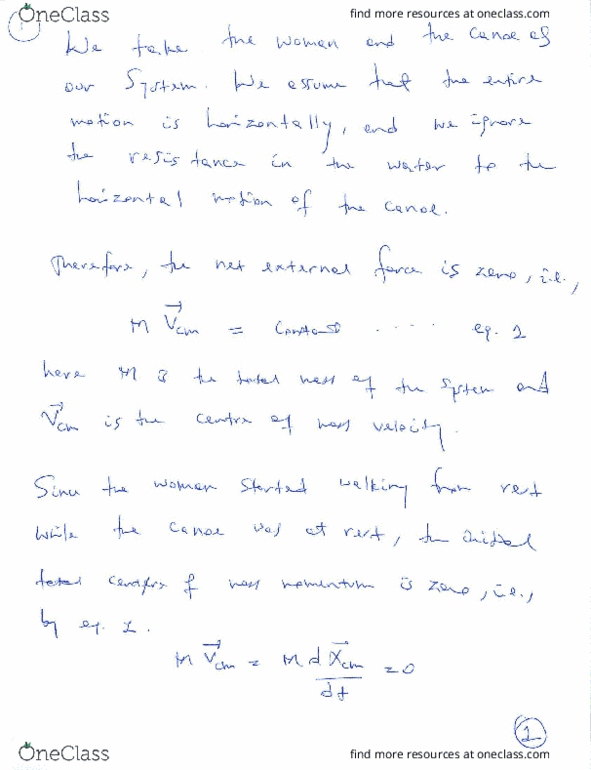 OneClass
find more resources at oneclass.com
1
We take the woman and the canoe as
our System. We assume that the entire
motion is horizontally, and we ignore
the resistance in the water to the
horizontal motion of the canoe.
Therefore, the net external force is zero, i.e.,
M V⃗cm = Constant .... eq. 1
here M is the total mass of the system and
V⃗cm is the centre of mass velocity.
Since the woman started walking from rest
while the canoe was at rest, the initial
total centre of mass momentum is zero, i.e.,
by eq. 1.
M V⃗cm = M dX⃗cm/dt = 0
1
OneClass
find more resources at oneclass.com